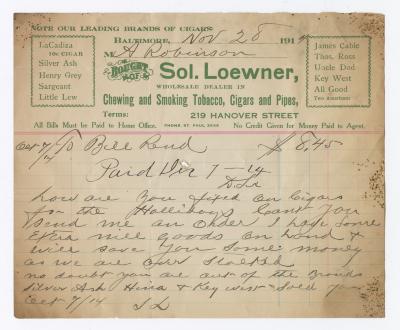 NOTE OUR LEADING BRANDS OF CIGARS
LaCadiza
10c CIGAR
Silver Ash
Henry Grey
Sargeant
Little Lew
BALTIMORE, Nov 28 1914
M A Robinson
BOUGHT OF
Sol. Loewner,
WHOLESALE DEALER IN
Chewing and Smoking Tobacco, Cigars and Pipes,
Terms: 219 HANOVER STREET
James Cable
Thos. Ross
Uncle Dod
Key West
All Good
TWO ASSORTMENTS
All Bills Must be Paid to Home Office. PHONE, ST. PAUL No Credit Given for Money Paid to Agent.
Oct 7/14 To Bill Rend $ 8.45
Paid Dec 7 - 14
how are you fixed on Cigars
for the Hollidays Cant you
send me an order I have some
Extra nice goods on hand &
will save you some money
as we are over stocked
no doubt you are out of the brands
Silver Ash & Key west Sold you
Oct 7/14 S L